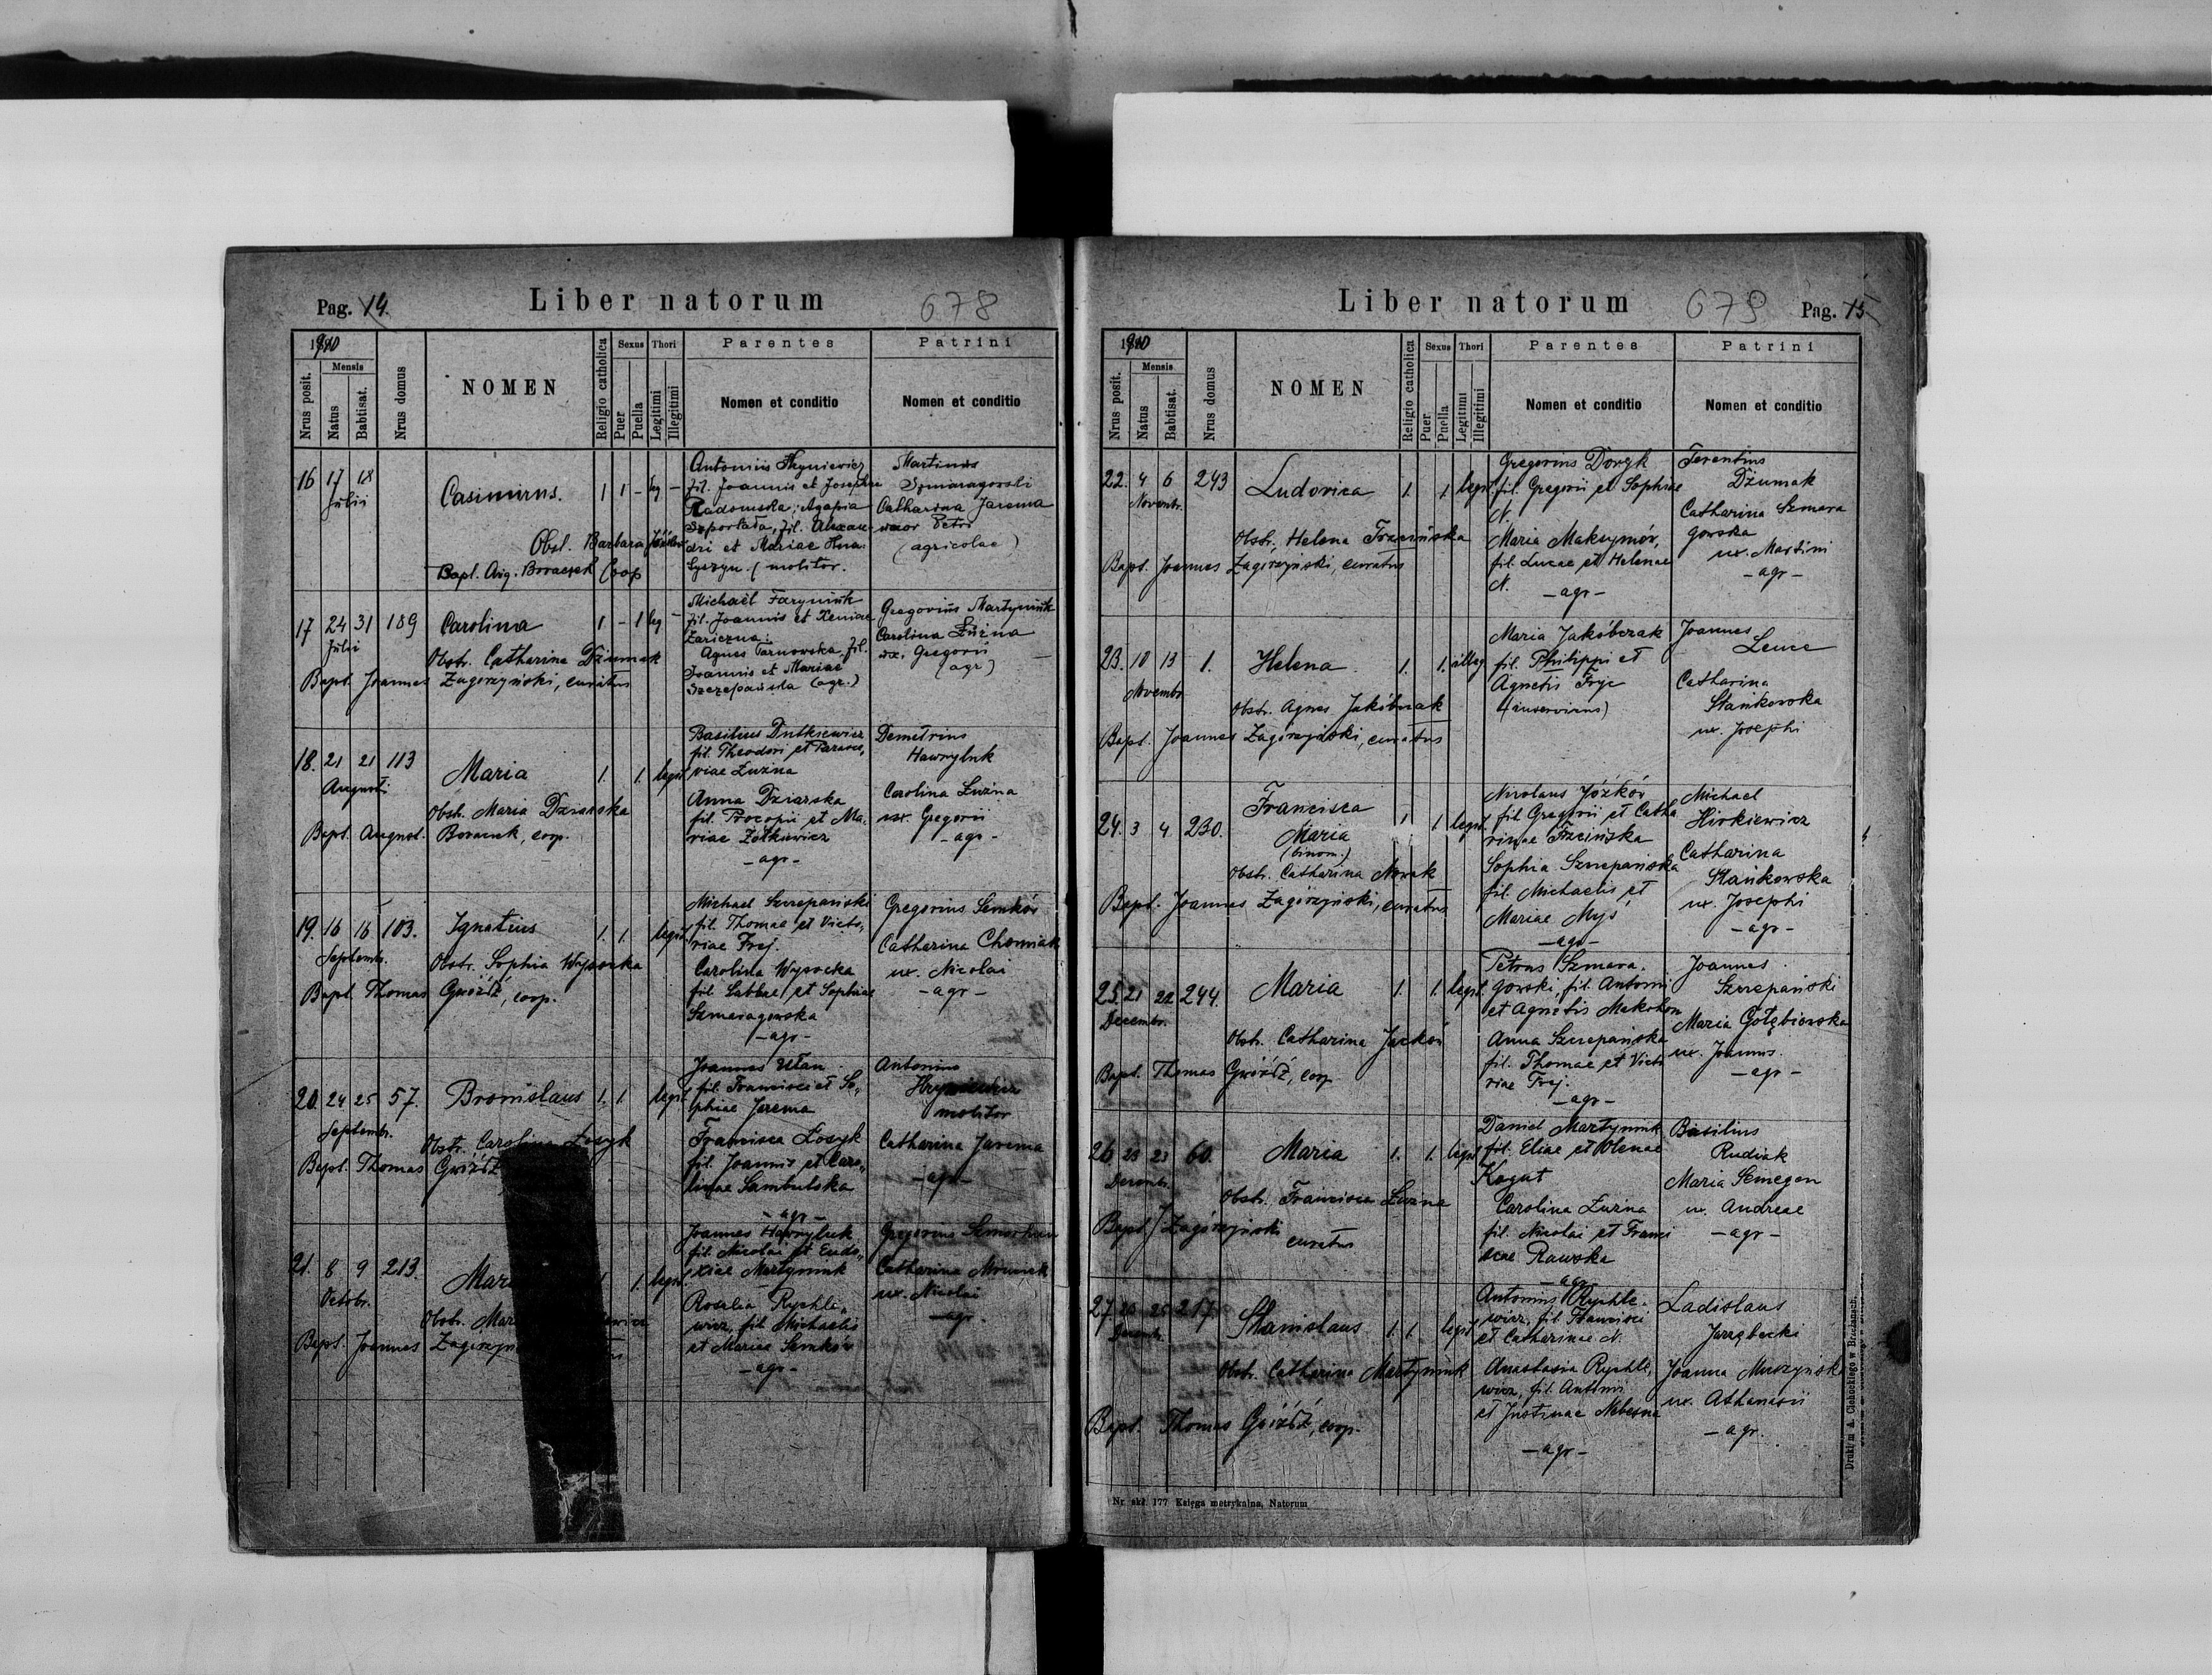 Pag. 14.
Liber natorum
678
1910
Nrus posit.
Mensis
Natus
Babtisat.
Nrus domus
NOMEN
Religio catholica
Sexus
Puer
Puella
Thori
Legitimi
Illegitimi
Parentes
Nomen et conditio
Patrini
Nomen et conditio
16 17 18
Julii
Casimirus.
1 1 - leg -
Obst. Barbara
Bapt. Aug. Boraczek Coop
Antonius
fil. Joannis et Josephae
Radomska; Agapia
fil. Alexan-
dri et Mariae
(molitor.
Martinus
Szmaragowski
Catharina Jarema
uxor Petri
(agricolae)
17 24 31 189
Julii
Carolina
1 - 1 leg -
Obstr. Catharina Dziumak
Bapt. Joannes Zagórzyński, curatus
Michaël
fil. Joannis et Xeniae
Zariczna;
Agnes Tarnowska, fil.
Joannis et Mariae
Szczepańska (agr.)
Gregorius Martyniuk
Carolina Łuźna
ux. Gregorii
(agr)
18. 21 21 113
Augusti
Maria
1. 1. legit.
Obstr. Maria Dziarska
Bapt. August. Boraczek, coop.
Basilius Dutkiewicz
fil. Theodori et Parasce,,
viae Łuźna
Anna Dziarska
fil. Procopii et Ma,,
riae Żółkiewicz
- agr -
Demetrius
Hawryluk
Carolina Łuźna
ux. Gregorii
- agr -
19. 16 16 103.
Septembr.
Ignatius
1. 1. legit.
Obstr. Sophia Wysocka
Bapt. Thomas Gwóźdź, coop.
Michael Szczepański
fil. Thomae et Victo,,
riae Frej.
Carolina Wysocka
fil. Sabbae et Sophiae
Szmaragowska
- agr -
Gregorius Semków
Catharina Chomiak
ux. Nicolai
- agr -
20. 24 25 57.
Septembr.
Bronislaus
1. 1. legit.
Obstr. Carolina Łosyk
Bapt. Thomas Gwóźdź
Joannes Ułan
fil. Francisci et So,,
phiae Jarema
Francisca Łosyk
fil. Joannis et Caro,,
linae Sambulska
- agr -
Antonius
molitor
Catharina Jarema
- agr -
21. 8 9 213.
Octobr.
Mar
1. legit.
Obstr. Mar
Bapt. Joannes Zagórzyń
Joannes Hawryluk
fil. Nicolai et Eudo,,
xiae Martyniuk
Rosalia Rychle,,
wicz, fil. Michaelis
et Mariae Semków
- agr -
Gregorius
Catharina
ux. Nicolai
- agr.
Liber natorum
679
Pag. 15
1910
Nrus posit.
Mensis
Natus
Babtisat.
Nrus domus
NOMEN
Religio catholica
Sexus
Puer
Puella
Thori
Legitimi
Illegitimi
Parentes
Nomen et conditio
Patrini
Nomen et conditio
22. 4 6 243
Novembr.
Ludovica
1. 1. legit.
Obstr. Helena Trzcińska
Bapt. Joannes Zagórzyński, curatus
Gregorius
fil. Gregorii et Sophiae
N.
Maria Maksymów,
fil. Lucae et Helenae
N. - agr -
Terentius
Dziumak
Catharina Szmara
gowska
ux. Martini
- agr -
23. 10 13 1.
Novembr.
Helena
1. 1. illeg.
Obstr. Agnes Jakóbczak
Bapt. Joannes Zagórzyński, curatus
Maria Jakóbczak
fil. Philippi et
Agnetis Fryc
Joannes
Catharina
Stańkowska
ux. Josephi
24. 3 4 230.
Francisca
Maria
(binom.)
1. 1. legit.
Obstr. Catharina Nowak
Bapt. Joannes Zagórzyński, curatus
Nicolaus Józków
fil. Gregorii et Catha
rinae Trzcińska
Sophia Szczepańska
fil. Michaelis et
Mariae Myś
- agr -
Michael
Hirkiewicz
Catharina
Stańkowska
ux. Josephi
- agr -
25. 21 22 244.
Decembr.
Maria
1. 1. legit.
Obstr. Catharina
Bapt. Thomas Gwóźdź, coop
Petrus Szmara,
gowski, fil. Antonii
et Agnetis Makohon
Anna Szczepańska
fil. Thomae et Victo
riae Frej.
- agr -
Joannes
Szczepański
Maria Gołębiowska
ux. Joannis.
- agr -
26 23 23 60.
Decembr.
Maria
1. 1. legit.
Obstr. Francisca Łuźna
Bapt. J Zagórzyński
curatus
Daniel Martyniuk
fil. Eliae et Olenae
Kogut
Carolina Łuźna
fil. Nicolai et Franci
scae Rawska
- agr -
Basilius
Rudiak
Maria Semegen
ux. Andreae
- agr -
27 20 25 217.
Decembr.
Stanislaus
1. 1. legit.
Obstr. Catharina Martyniuk
Bapt. Thomas Gwóźdź, coop.
Antonius Rychle,
wicz, fil. Francisci
et Catharinae N.
Anastasia Rychle,
wicz, fil. Antonii
et Justinae Nebesna
- agr -
Ladislaus
Jarzębecki
Joanna
ux. Athanasii
- agr.
Nr. skł. 177 Księga metrykalna, Natorum
Drukiem A. Cichockiego w Brzeżanach.